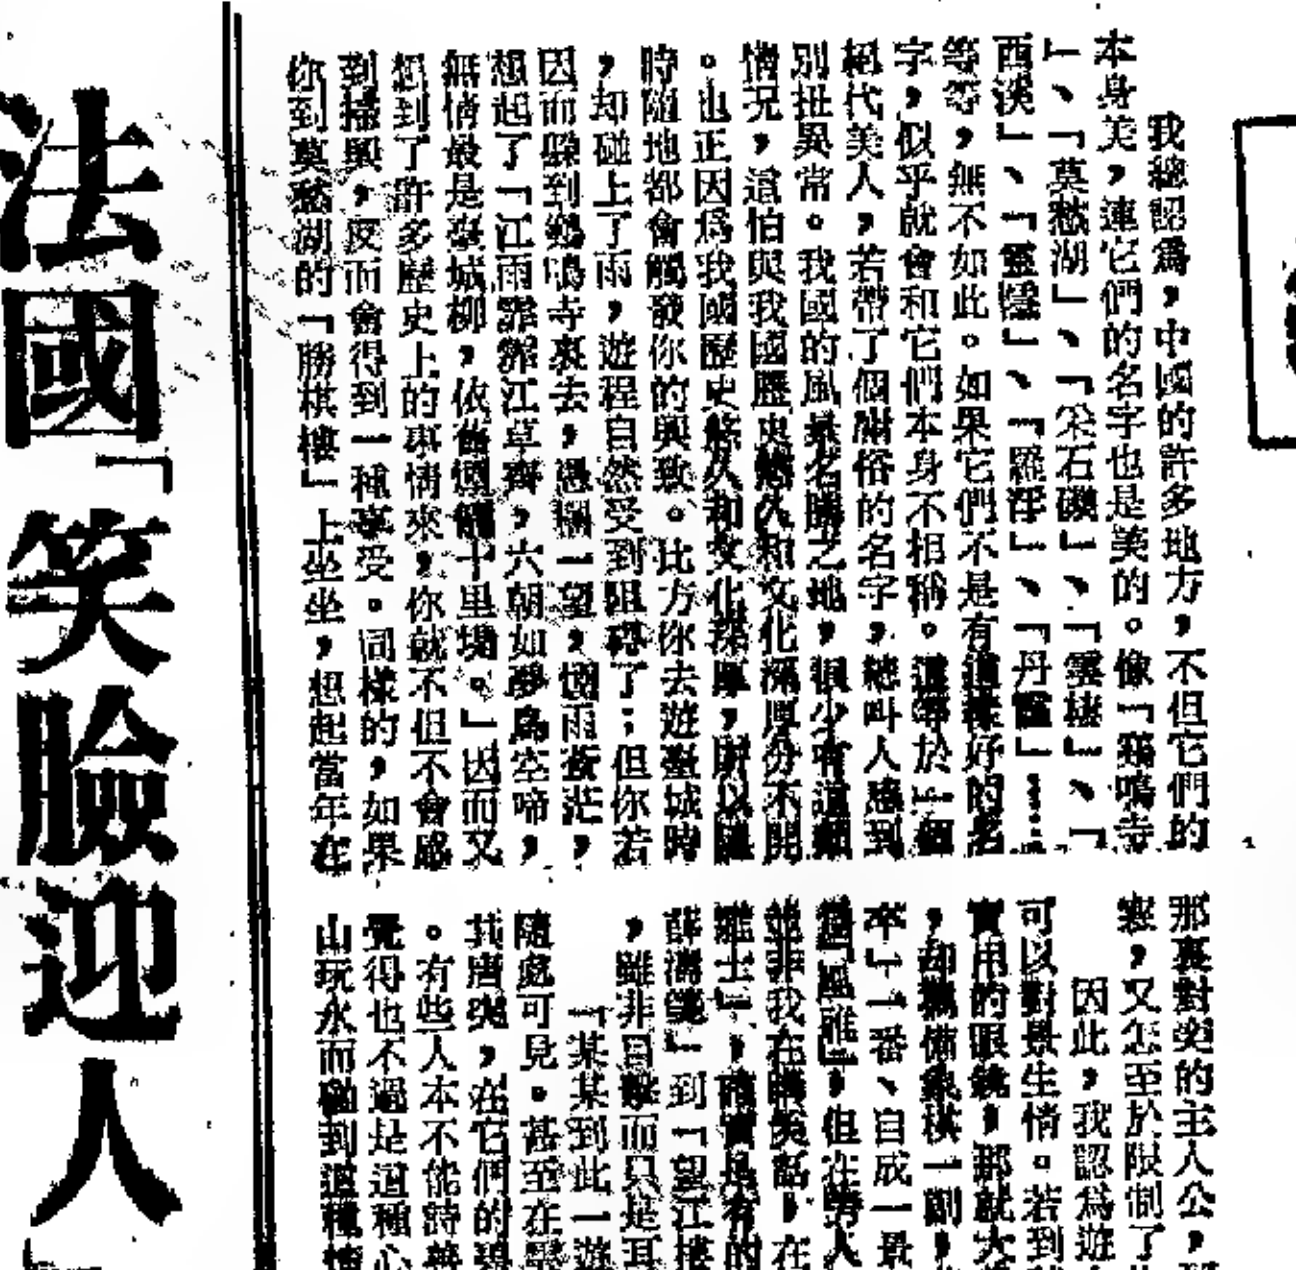 我總認爲，中國的許多地方，不但它們的
本身美，連它們的名字也是美的。像「鷄鳴寺
」、「莫愁湖」、「采石磯」、「雲棲」、「
西溪」、「靈隱」、「羅浮」、「丹霞」……
等等，無不如此。如果它們不是有這樣好的名
字，似乎就會和它們本身不相稱。這等於一個
絕代美人，若帶了個附俗的名字，總叫人感到
別扭異常。我國的風景名勝之地，很少有這類
情況，這怕與我國歷史悠久和文化深厚分不開
。也正因爲我國歷史悠久和文化深厚，所以隨
時隨地都會觸發你的興致。比方你去遊臺城時
，却碰上了雨，遊程自然受到阻碍了；但你若
因而躲到鷄鳴寺裏去，憑欄一望，烟雨蒼茫，
想起了「江雨霏霏江草齊，六朝如夢鳥空啼，
無情最是臺城柳，依舊烟籠十里堤。」因而又
想到了許多歷史上的事情來，你就不但不會感
到掃興，反而會得到一種享受。同樣的，如果
你到莫愁湖的「勝棋樓」上坐坐，想起當年在
那裏對奕的主人公，
，又怎至於限制了
因此，我認爲遊
可以對景生情。若到
實用的眼鏡，那就大
，却擺備象棋一副，
本」一番、自成一景
風雅」，但在勞人
並非我在講笑話，在
雅士」，確實是有的
薛濤箋」到「望江樓
，雖非目擊而只是耳
「某某到此一遊
隨處可見。甚至在
其唐突，在它們的碧
。有些人本不能詩善
覺得也不過是這種心
山玩水而碰到這種情
法國「笑臉迎人」